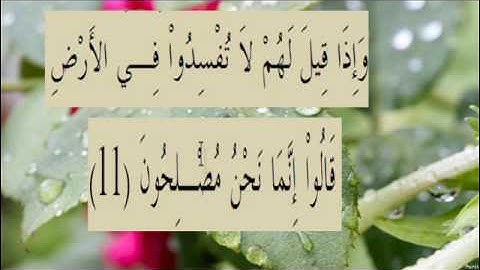 وَإِذَا قِيلَ لَهُمْ لاَ تُفْسِدُواْ فِـــي الأَرْضِ
قَالُواْ إِنَّمَا نَحْنُ مُصْـــلِحُونَ (11)